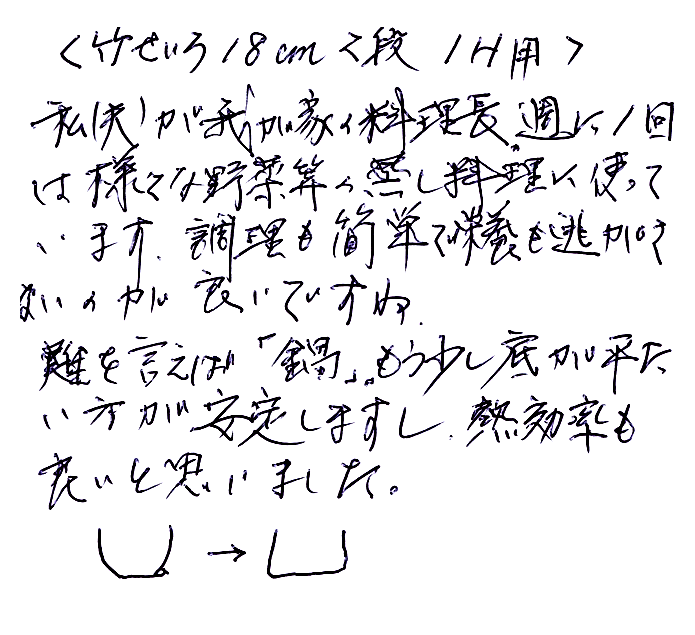 <竹せいろ18cm2段 IH用>
私(夫)が我が家の料理長。週に1回
は様々な野菜等の蒸し料理に使って
います。調理も簡単で栄養も逃がさ
ないのが良いですね。
難を言えば「鍋」。もう少し底が平た
い方が安定しますし、熱効率も
良いと思いました。
→